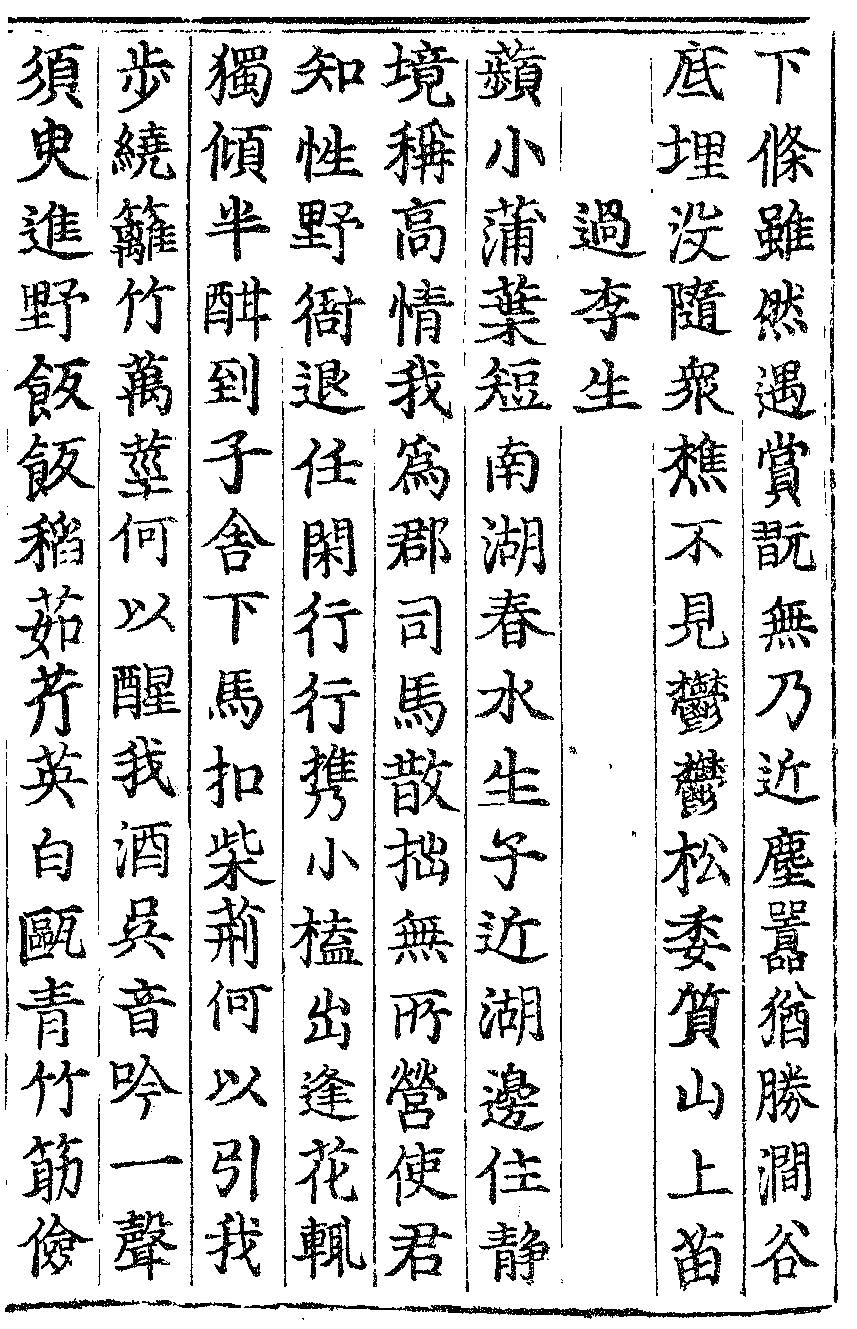 下條雖然遇賞翫無乃近塵囂猶勝澗谷
底埋没隨衆樵不見鬱鬱松委質山上苗
過李生
蘋小蒲葉短南湖春水生子近湖邊住静
境稱高情我爲郡司馬散拙無所營使君
知性野衙退任閑行行携小榼出逢花輙
獨傾半酣到子舎下馬扣柴荊何以引我
歩繞籬竹萬莖何以醒我酒吳音吟一聲
須臾進野飯飯稻茹芹英白甌青竹筯儉